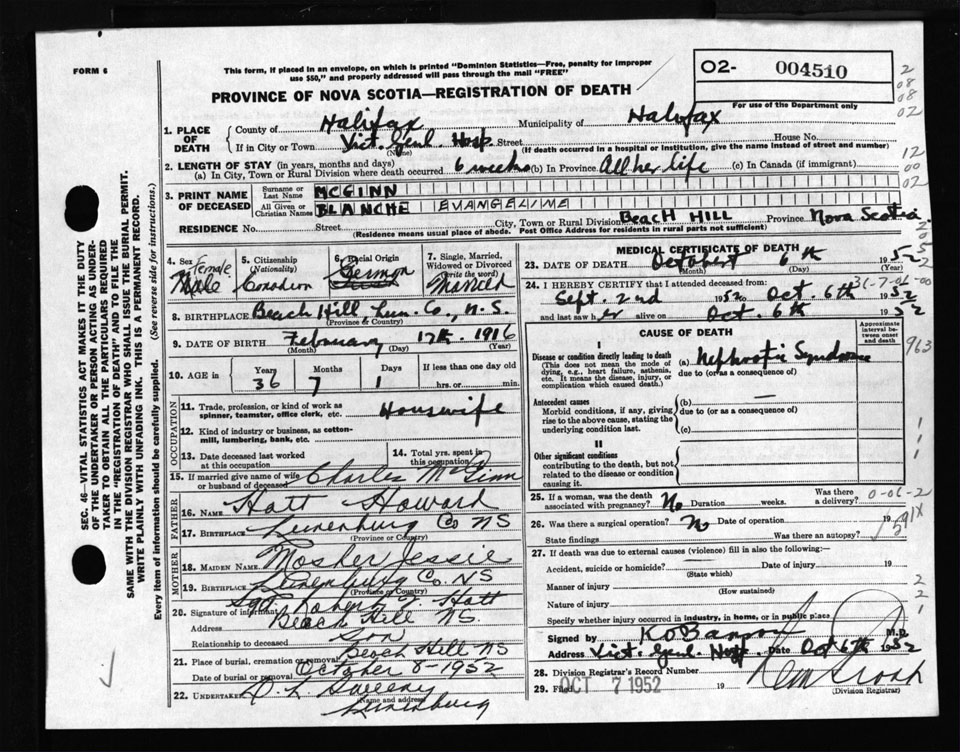 FORM 6
This form, if placed in an envelope, on which is printed "Dominion Statistics—Free, penalty for improper
use $50," and properly addressed will pass through the mail "FREE"
O2- 004510
PROVINCE OF NOVA SCOTIA—REGISTRATION OF DEATH
For use of the Department only
2
08
08
02
12
00
02
1. PLACE OF DEATH
County of Halifax Municipality of Halifax
If in City or Town Vict. Genl. Hosp. Street House No.
(Name) (If death occurred in a hospital or institution, give the name instead of street and number)
2. LENGTH OF STAY (in years, months and days)
(a) In City, Town or Rural Division where death occurred 6 weeks (b) In Province All her life (c) In Canada (if immigrant)
3. PRINT NAME OF DECEASED
Surname or Last Name MCGINN
All Given or Christian Names BLANCHE EVANGELINE
RESIDENCE No. Street City, Town or Rural Division BEACH HILL Province Nova Scotia
(Residence means usual place of abode. Post Office Address for residents in rural parts not sufficient)
4. Sex Female Male
5. Citizenship (Nationality) Canadian
6. Racial Origin German
7. Single, Married, Widowed or Divorced (write the word) Married
8. BIRTHPLACE Beach Hill, Lun. Co., N.S.
(Province & Country)
9. DATE OF BIRTH February 17th. 1916
(Month) (Day) (Year)
10. AGE in Years Months Days If less than one day old
36 7 1 hrs. or min.
OCCUPATION
11. Trade, profession, or kind of work as spinner, teamster, office clerk, etc. Housewife
12. Kind of industry or business, as cotton-mill, lumbering, bank, etc.
13. Date deceased last worked at this occupation
14. Total yrs. spent in this occupation
15. If married give name of wife or husband of deceased Charles McGinn
FATHER
16. NAME Hatt Howard
17. BIRTHPLACE Lunenburg Co NS
(Province or Country)
MOTHER
18. MAIDEN NAME Mosher Jessie
19. BIRTHPLACE Lunenburg Co. NS
(Province or Country)
20. Signature of informant Sgd. Robert Hatt
Address Beach Hill NS.
Relationship to deceased Son
21. Place of burial, cremation or removal Beach Hill NS
Date of burial or removal October 8-1952
22. UNDERTAKER Sweeny
(Name and address)
Lunenburg
MEDICAL CERTIFICATE OF DEATH
23. DATE OF DEATH October 6th 1952
(Month) (Day) (Year)
24. I HEREBY CERTIFY that I attended deceased from:
Sept. 2nd 1952 to Oct. 6th 1952
and last saw her alive on Oct. 6th 1952
CAUSE OF DEATH
Approximate interval between onset and death
I
Disease or condition directly leading to death (a) Nephrotic Syndrome
(This does not mean the mode of dying, e.g., heart failure, asthenia, etc. It means the disease, injury, or complication which caused death.)
due to (or as a consequence of)
Antecedent causes (b) —
Morbid conditions, if any, giving rise to the above cause, stating the underlying condition last.
due to (or as a consequence of)
(c)
II
Other significant conditions
contributing to the death, but not related to the disease or condition causing it.
963
25. If a woman, was the death associated with pregnancy? No Duration weeks. Was there a delivery?
26. Was there a surgical operation? No Date of operation 19
State findings Was there an autopsy?
27. If death was due to external causes (violence) fill in also the following:—
Accident, suicide or homicide? Date of injury 19
(State which)
Manner of injury
(How sustained)
Nature of injury
Specify whether injury occurred in industry, in home, or in public place
Signed by M.D.
Address Vict. Genl. Hosp. Date Oct 6th 1952
28. Division Registrar's Record Number
29. Filed OCT 7 1952 19
(Division Registrar)
SEC. 46—VITAL STATISTICS ACT MAKES IT THE DUTY
OF THE UNDERTAKER OR PERSON ACTING AS UNDER-
TAKER TO OBTAIN ALL THE PARTICULARS REQUIRED
IN THE "REGISTRATION OF DEATH" AND TO FILE THE
SAME WITH THE DIVISION REGISTRAR WHO SHALL ISSUE THE BURIAL PERMIT.
WRITE PLAINLY WITH UNFADING INK. THIS IS A PERMANENT RECORD.
Every item of information should be carefully supplied. (See reverse side for instructions.)